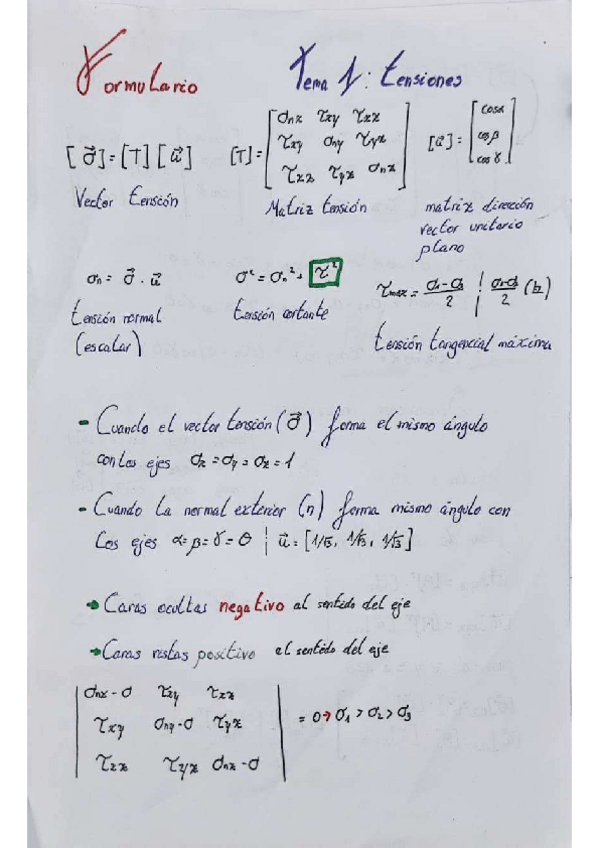 Formulario
Tema 1: Tensiones
[σ⃗]=[T][u⃗]
Vector tensión
[T]=[σnx τxy τxz
τxy σny τyz
τxz τyz σnz]
Matriz tensión
[u⃗]=[cosα
cosβ
cosγ]
matriz dirección
vector unitario
plano
σn = σ⃗ . u⃗
tensión normal
(escalar)
σ² = σn² + τ²
tensión cortante
τmax = σ1-σ3/2 | σ1-σ2/2 (2)
tensión tangencial máxima
- Cuando el vector tensión (σ⃗) forma el mismo ángulo
con los ejes σx = σy = σz = 1
- Cuando la normal exterior (n) forma mismo ángulo con
los ejes α=β=γ=θ | u⃗ = [1/√3, 1/√3, 1/√3]
Caras ocultas negativo al sentido del eje
Caras vistas positivo al sentido del eje
|σnx-σ τxy τxz
τxy σny-σ τyz
τzx τyz σnz-σ| = 0 → σ1 > σ2 > σ3